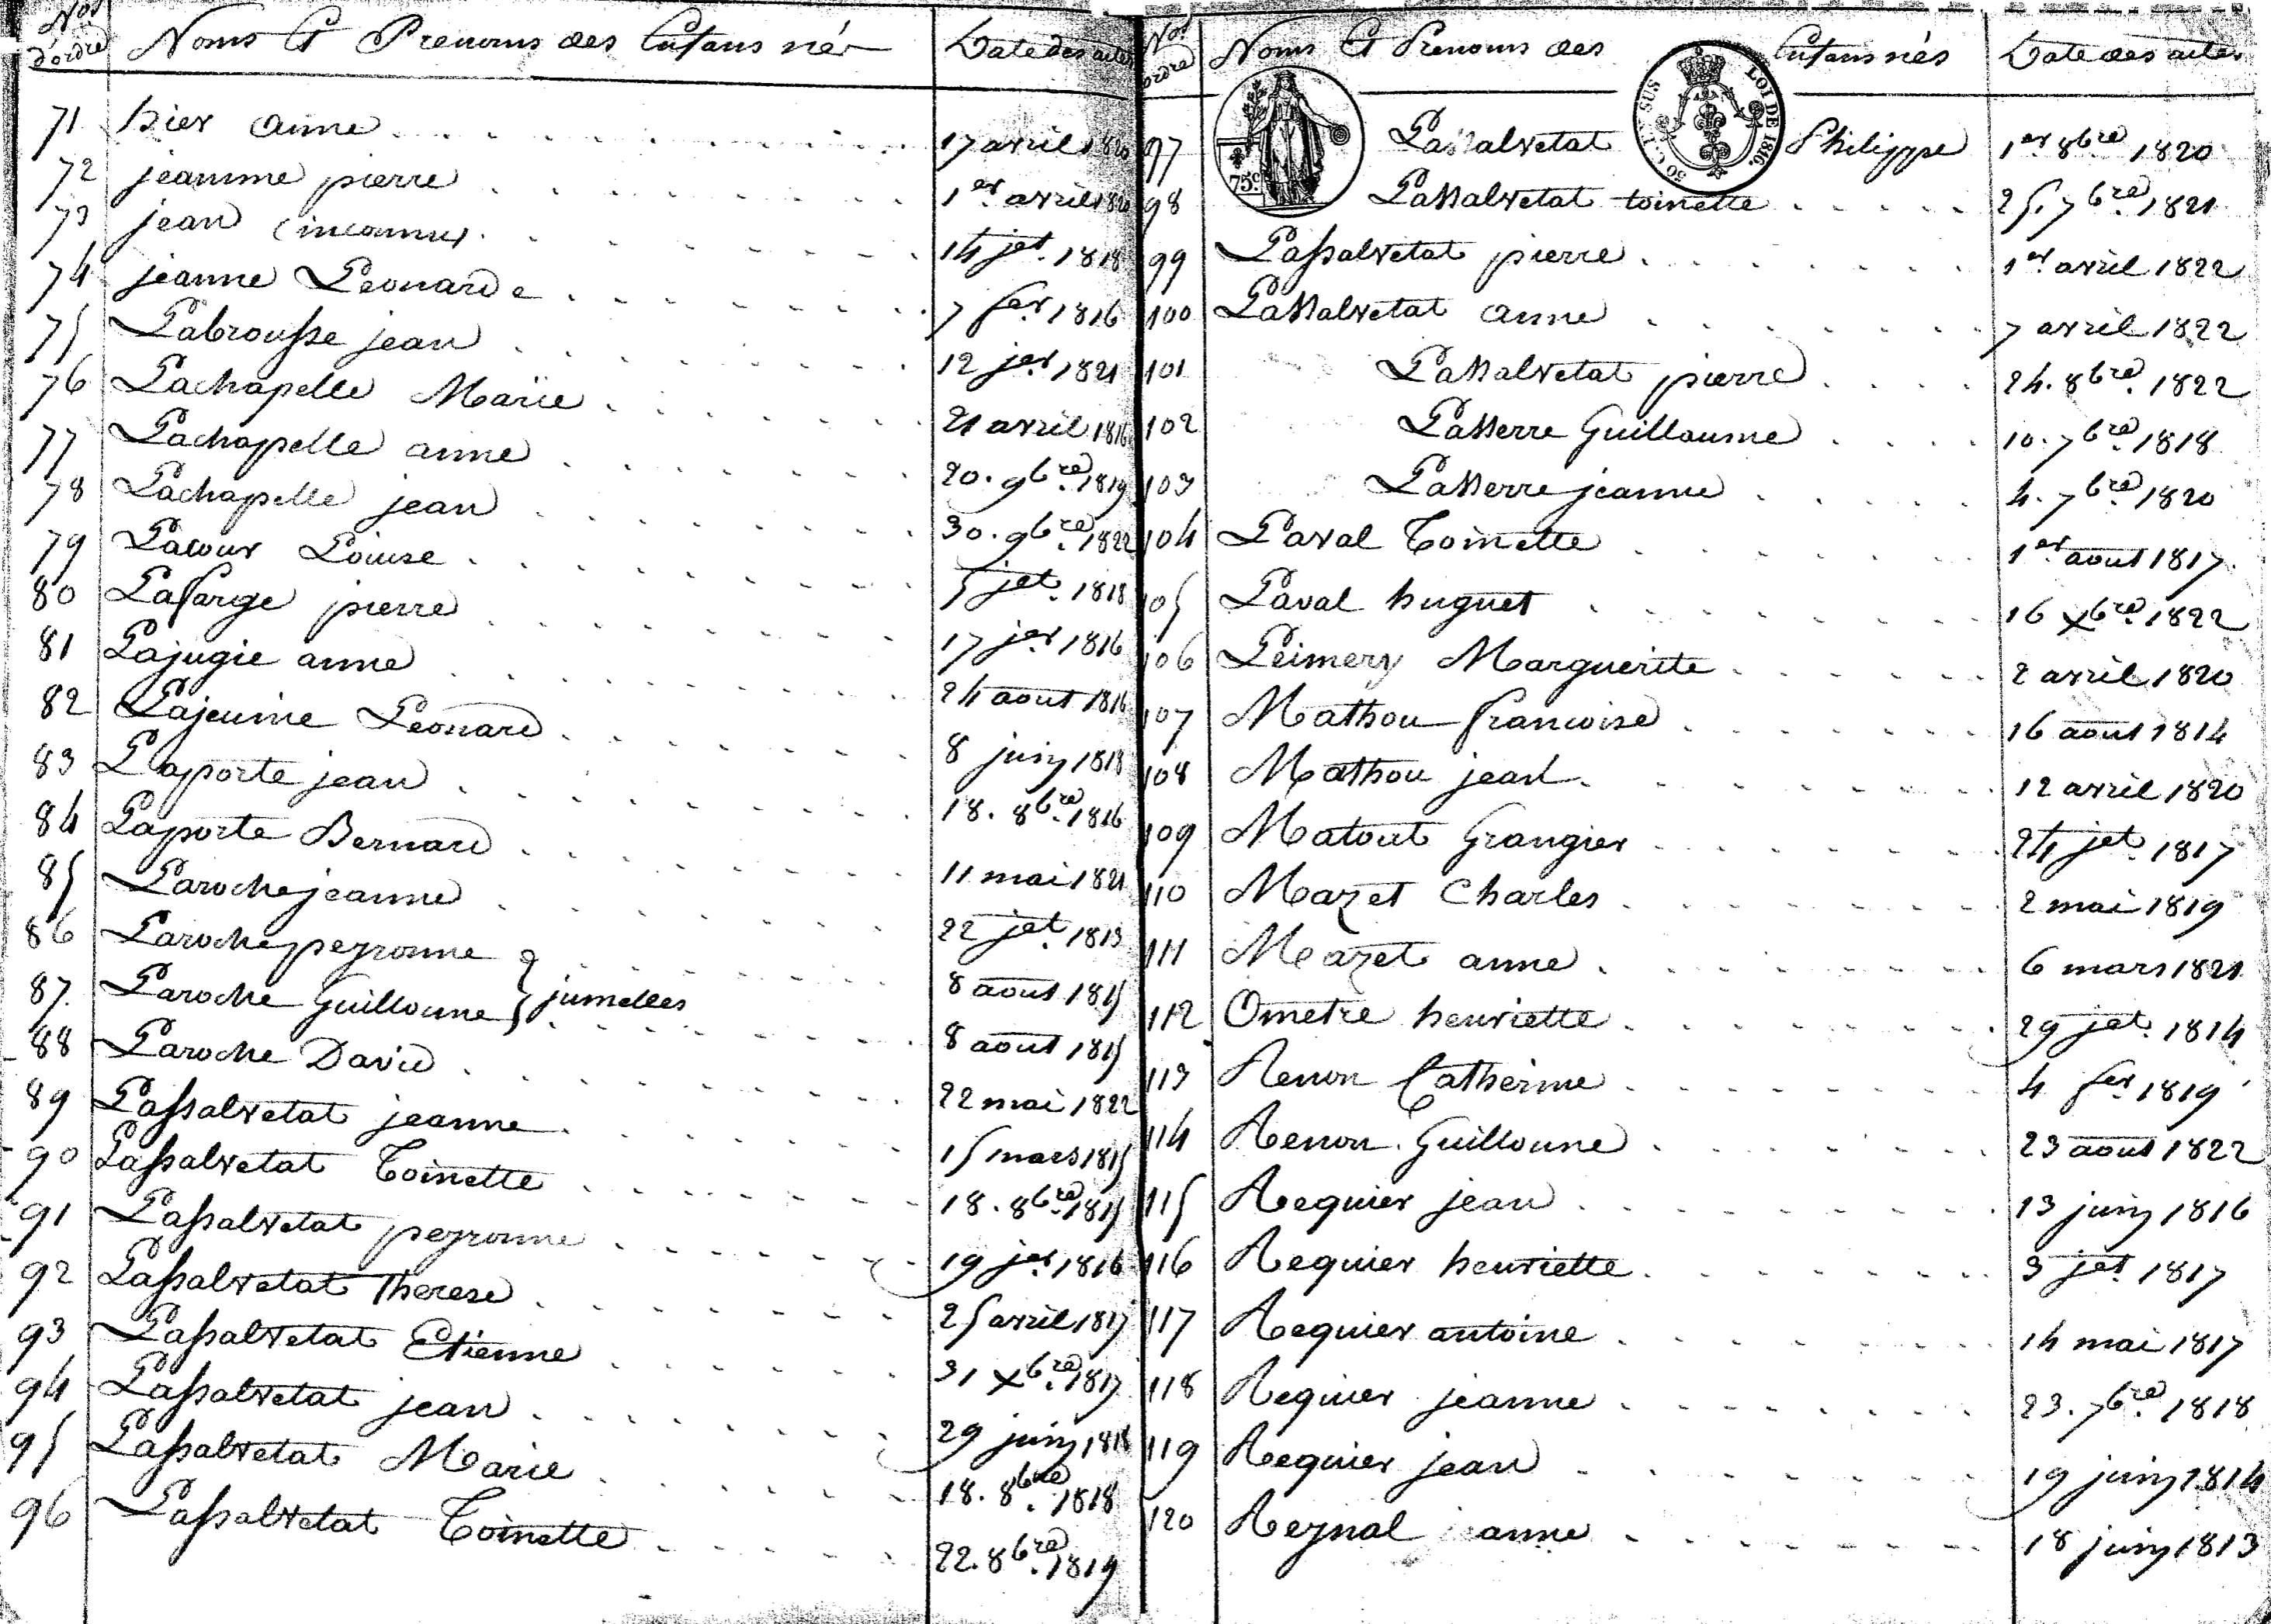 Nos d'ordre Noms Et Prenoms des Enfans nés Date des actes
71 hier anne 17 avril 1820
72 jeamme pierre 1er avril 1820
73 jean (inconnu) 14 jet. 1818
74 jeanne Leonarde 7 fer 1816
75 Labrousse jean 12 jer 1821
76 Lachapelle Marie 21 avril 1816
77 Lachapelle anne 20. 9bre. 1819
78 Lachapelle jean 30. 9bre. 1822
79 Lacour Louise 5 jet. 1818
80 Lafarge pierre 17 jer 1816
81 Lajugie anne 24 aout 1816
82 Lajeunie Leonard 8 juin 1818
83 Laporte jean 18. 8bre. 1816
84 Laporte Bernard 11 mai 1821
85 Laroche jeanne 22 jet. 1813
86 Laroche peyronne 8 aout 1815
87. Laroche Guilloune } jumelles 8 aout 1815
88 Laroche David 22 mai 1822
89 Lassalvetat jeanne 15 mars 1815
90 Lassalvetat Toinette 18. 8bre. 1815
91 Lassalvetat peyronne 19 jer 1816
92 Lassalvetat Therese 25 avril 1817
93 Lassalvetat Etienne 31 Xbre. 1817
94 Lassalvetat jean 29 juin 1818
95 Lassalvetat Marie 18. 8bre. 1818
96 Lassalvetat Toinette 22. 8bre. 1819
Nos ordre Noms Et Prenoms des Enfans nés Date des actes
75c.
50 C. EN SUS LOI DE 1816
97 Lassalvetat Philippe 1er 8bre 1820
98 Lassalvetat toinette 25. 7bre. 1821
99 Lassalvetat pierre 1er avril 1822
100 Lassalvetat anne 7 avril 1822
101 Lassalvetat pierre 24. 8bre. 1822
102 Lasserre Guillaume 10. 7bre. 1818
103 Lasserre jeanne 4. 7bre. 1820
104 Laval Toinette 1er aout 1817
105 Laval huguet 16 Xbre. 1822
106 Leimery Marguerite 2 avril 1820
107 Mathou francoise 16 aout 1814
108 Mathou jean 12 avril 1820
109 Matout Grangier 24 jet. 1817
110 Mazet Charles 2 mai 1819
111 Mazet anne 6 mars 1821
112 Ometre henriette 29 jet. 1814
113 Renon Catherine 4 fer 1819
114 Renon Guilloune 23 aout 1822
115 Requier jean 13 juin 1816
116 Requier henriette 3 jet. 1817
117 Requier antoine 14 mai 1817
118 Requier jeanne 23. 7bre. 1818
119 Requier jean 19 juin 1814
120 Reynal anne 18 juin 1813